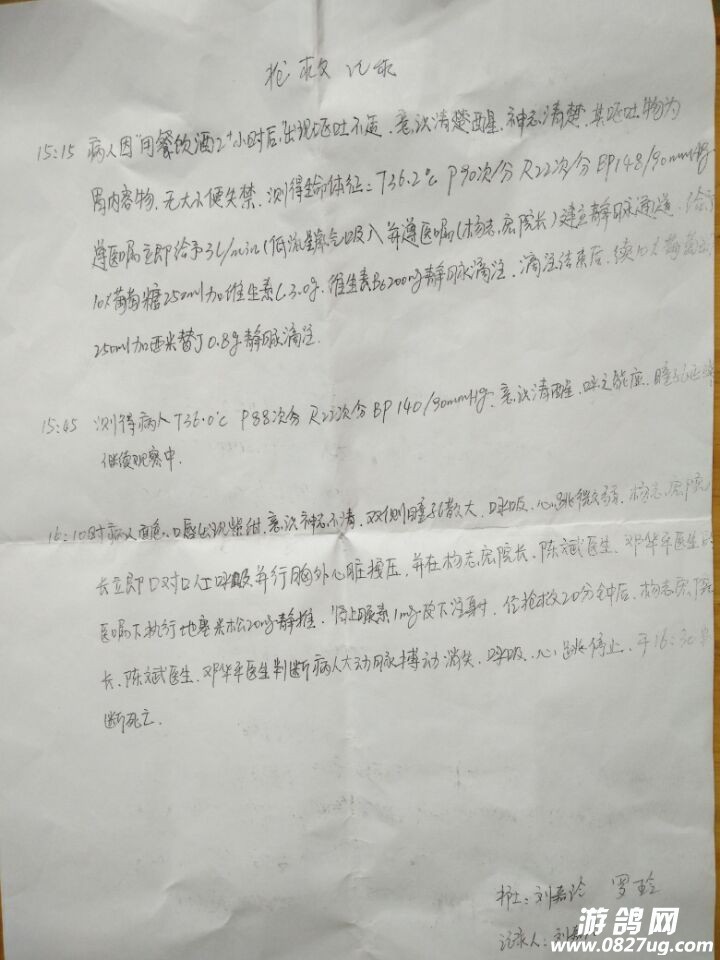 抢救记录
15:15 病人因"用餐饮酒2⁺小时后,出现呕吐不适,意识清楚西星,神志清楚,其呕吐物为
胃内容物,无大小便失禁,测得生命体征:T36.2℃ P90次/分 R22次/分 BP148/90mmHg
遵医嘱立即给予3L/min(低流量氧气吸入并遵医嘱(杨志宏院长)建立静脉通道,给予
10%葡萄糖250ml加维生素C3.0g,维生素B6200mg静脉滴注,滴注结束后,续10%葡萄
250ml加西米替丁0.8g静脉滴注.
15:45 测得病人T36.0℃ P88次分 R22次分 BP140/90mmHg,意识清醒,呼之能应,瞳
继续观察中.
16:10时病人面色、口唇出现紫绀,意识神志不清,双侧瞳孔散大,呼吸、心跳微弱,杨志宏院
长立即口对口人工呼吸并行胸外心脏按压,并在杨志宏院长、陈斌医生、邓华平医生
医嘱下执行地塞米松20mg静推,肾上腺素1mg皮下注射,经抢救20分钟后,杨志宏院
长、陈斌医生、邓华平医生判断病人大动脉搏动消失,呼吸、心跳停止,于16:30
断死亡.
护士:刘嘉玲 罗玲
记录人:刘
游鸽网
www.0827ug.com